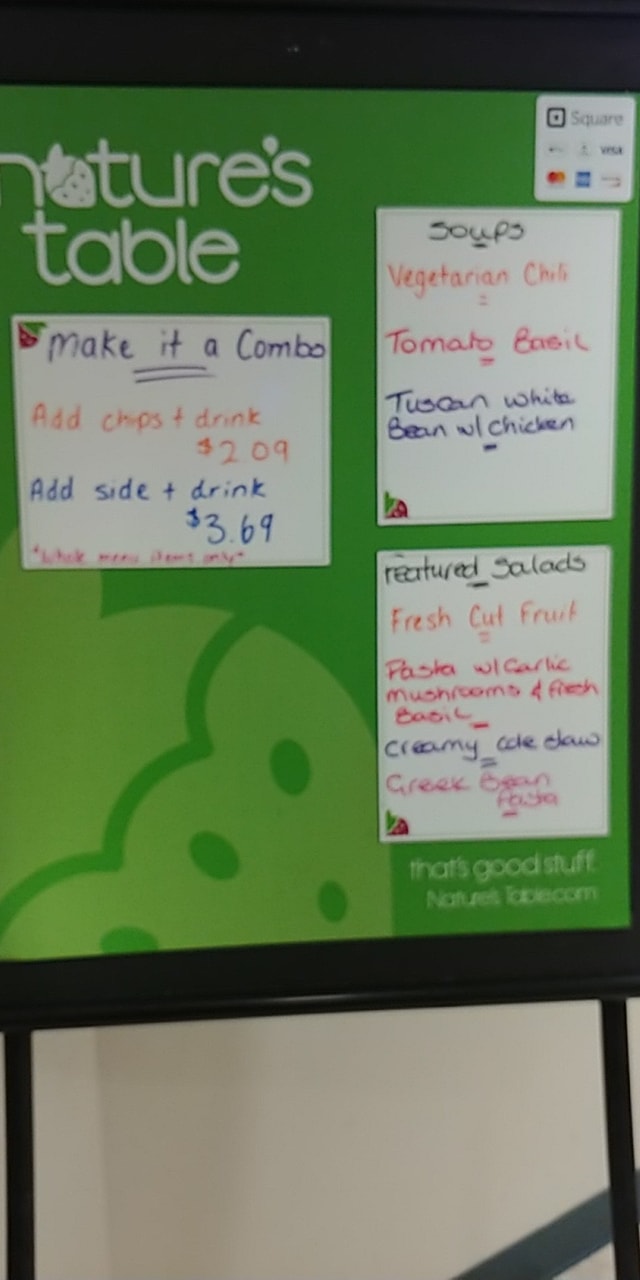 nature's
table
Square
VISA
Make it a Combo
Add chips + drink
$2.09
Add side + drink
$3.69
*Whole menu items only*
Soups
Vegetarian Chili
Tomato Basil
Tuscan white
Bean w/ chicken
Featured Salads
Fresh Cut Fruit
Pasta w/ Garlic
mushrooms & fresh
Basil
Creamy cole slaw
Greek Bean
Pasta
that's good stuff.
Nature'sTable.com